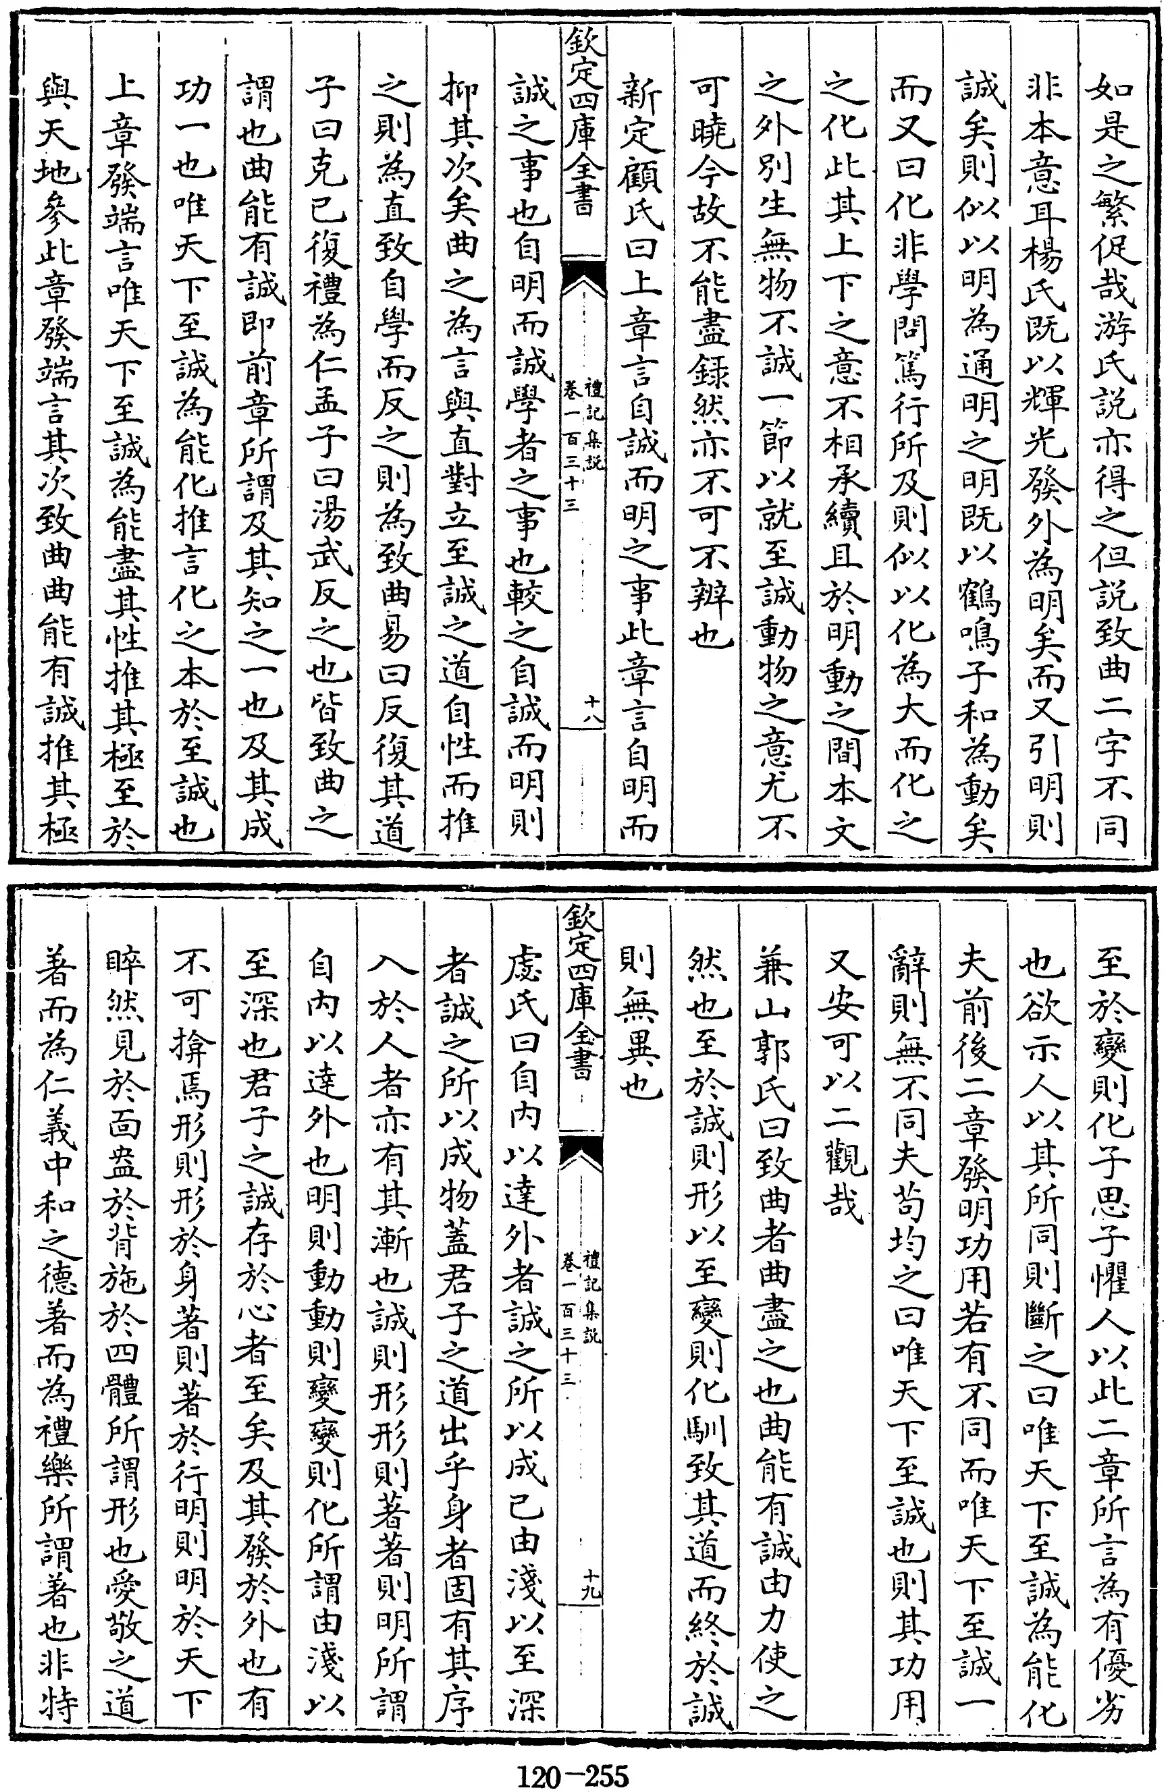 如是之繁促哉游氏説亦得之但説致曲二字不同
非本意耳楊氏既以輝光發外為明矣而又引明則
誠矣則似以明為通明之明既以鶴鳴子和為動矣
而又曰化非學問篤行所及則似以化為大而化之
之化此其上下之意不相承續且於明動之間本文
之外别生無物不誠一節以就至誠動物之意尤不
可曉今故不能盡録然亦不可不辨也
新定顧氏曰上章言自誠而明之事此章言自明而
欽定四庫全書
禮記集説
卷一百三十三
十八
誠之事也自明而誠學者之事也較之自誠而明則
抑其次矣曲之為言與直對立至誠之道自性而推
之則為直致自學而反之則為致曲易曰反復其道
子曰克已復禮為仁孟子曰湯武反之也皆致曲之
謂也曲能有誠即前章所謂及其知之一也及其成
功一也唯天下至誠為能化推言化之本於至誠也
上章發端言唯天下至誠為能盡其性推其極至於
與天地參此章發端言其次致曲曲能有誠推其極
至於變則化子思子懼人以此二章所言為有優劣
也欲示人以其所同則斷之曰唯天下至誠為能化
夫前後二章發明功用若有不同而唯天下至誠一
辭則無不同夫苟均之曰唯天下至誠也則其功用
又安可以二觀哉
兼山郭氏曰致曲者曲盡之也曲能有誠由力使之
然也至於誠則形以至變則化馴致其道而終於誠
則無異也
欽定四庫全書
禮記集説
卷一百三十三
十九
虙氏曰自内以達外者誠之所以成已由淺以至深
者誠之所以成物蓋君子之道出乎身者固有其序
入於人者亦有其漸也誠則形形則著著則明所謂
自内以達外也明則動動則變變則化所謂由淺以
至深也君子之誠存於心者至矣及其發於外也有
不可揜焉形則形於身著則著於行明則明於天下
睟然見於面盎於背施於四體所謂形也愛敬之道
著而為仁義中和之德著而為禮樂所謂著也非特
120-255